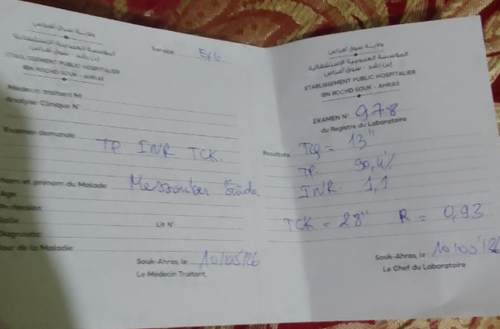 ولاية سوق أهراس
المؤسسة العمومية الإستشفائية
ابن رشد - سوق أهراس
ETABLISSEMENT PUBLIC HOSPITALIER
IBN ROCHD SOUK - AHRAS
Service
Médecin traitant M
Analyse Clinique N°
Examen demandé
TP INR TCK
Nom et prénom du Malade
Age
Profession
Salle
Lit N°
Diagnostic
Jour de la Maladie
Souk-Ahras, le 10/05/26
Le Médecin Traitant,
ولاية سوق أهراس
المؤسسة العمومية الإستشفائية
ابن رشد - سوق أهراس
ETABLISSEMENT PUBLIC HOSPITALIER
IBN ROCHD SOUK - AHRAS
EXAMEN N° 978
du Registre du Laboratoire
Résultats
TQ = 13"
TP. 90,4%
INR. 1,1
TCK = 28" R = 0,93
Souk-Ahras, le 10/05/26
Le Chef du Laboratoire